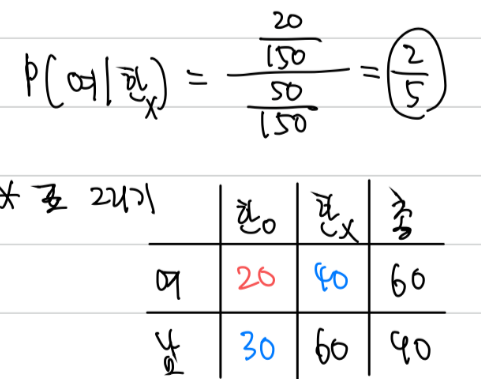 P(여|한x) = \frac{\frac{20}{150}}{\frac{50}{150}} = \frac{2}{5}
* 표 그리기
한o 한x 총
여 20 40 60
남 30 60 90